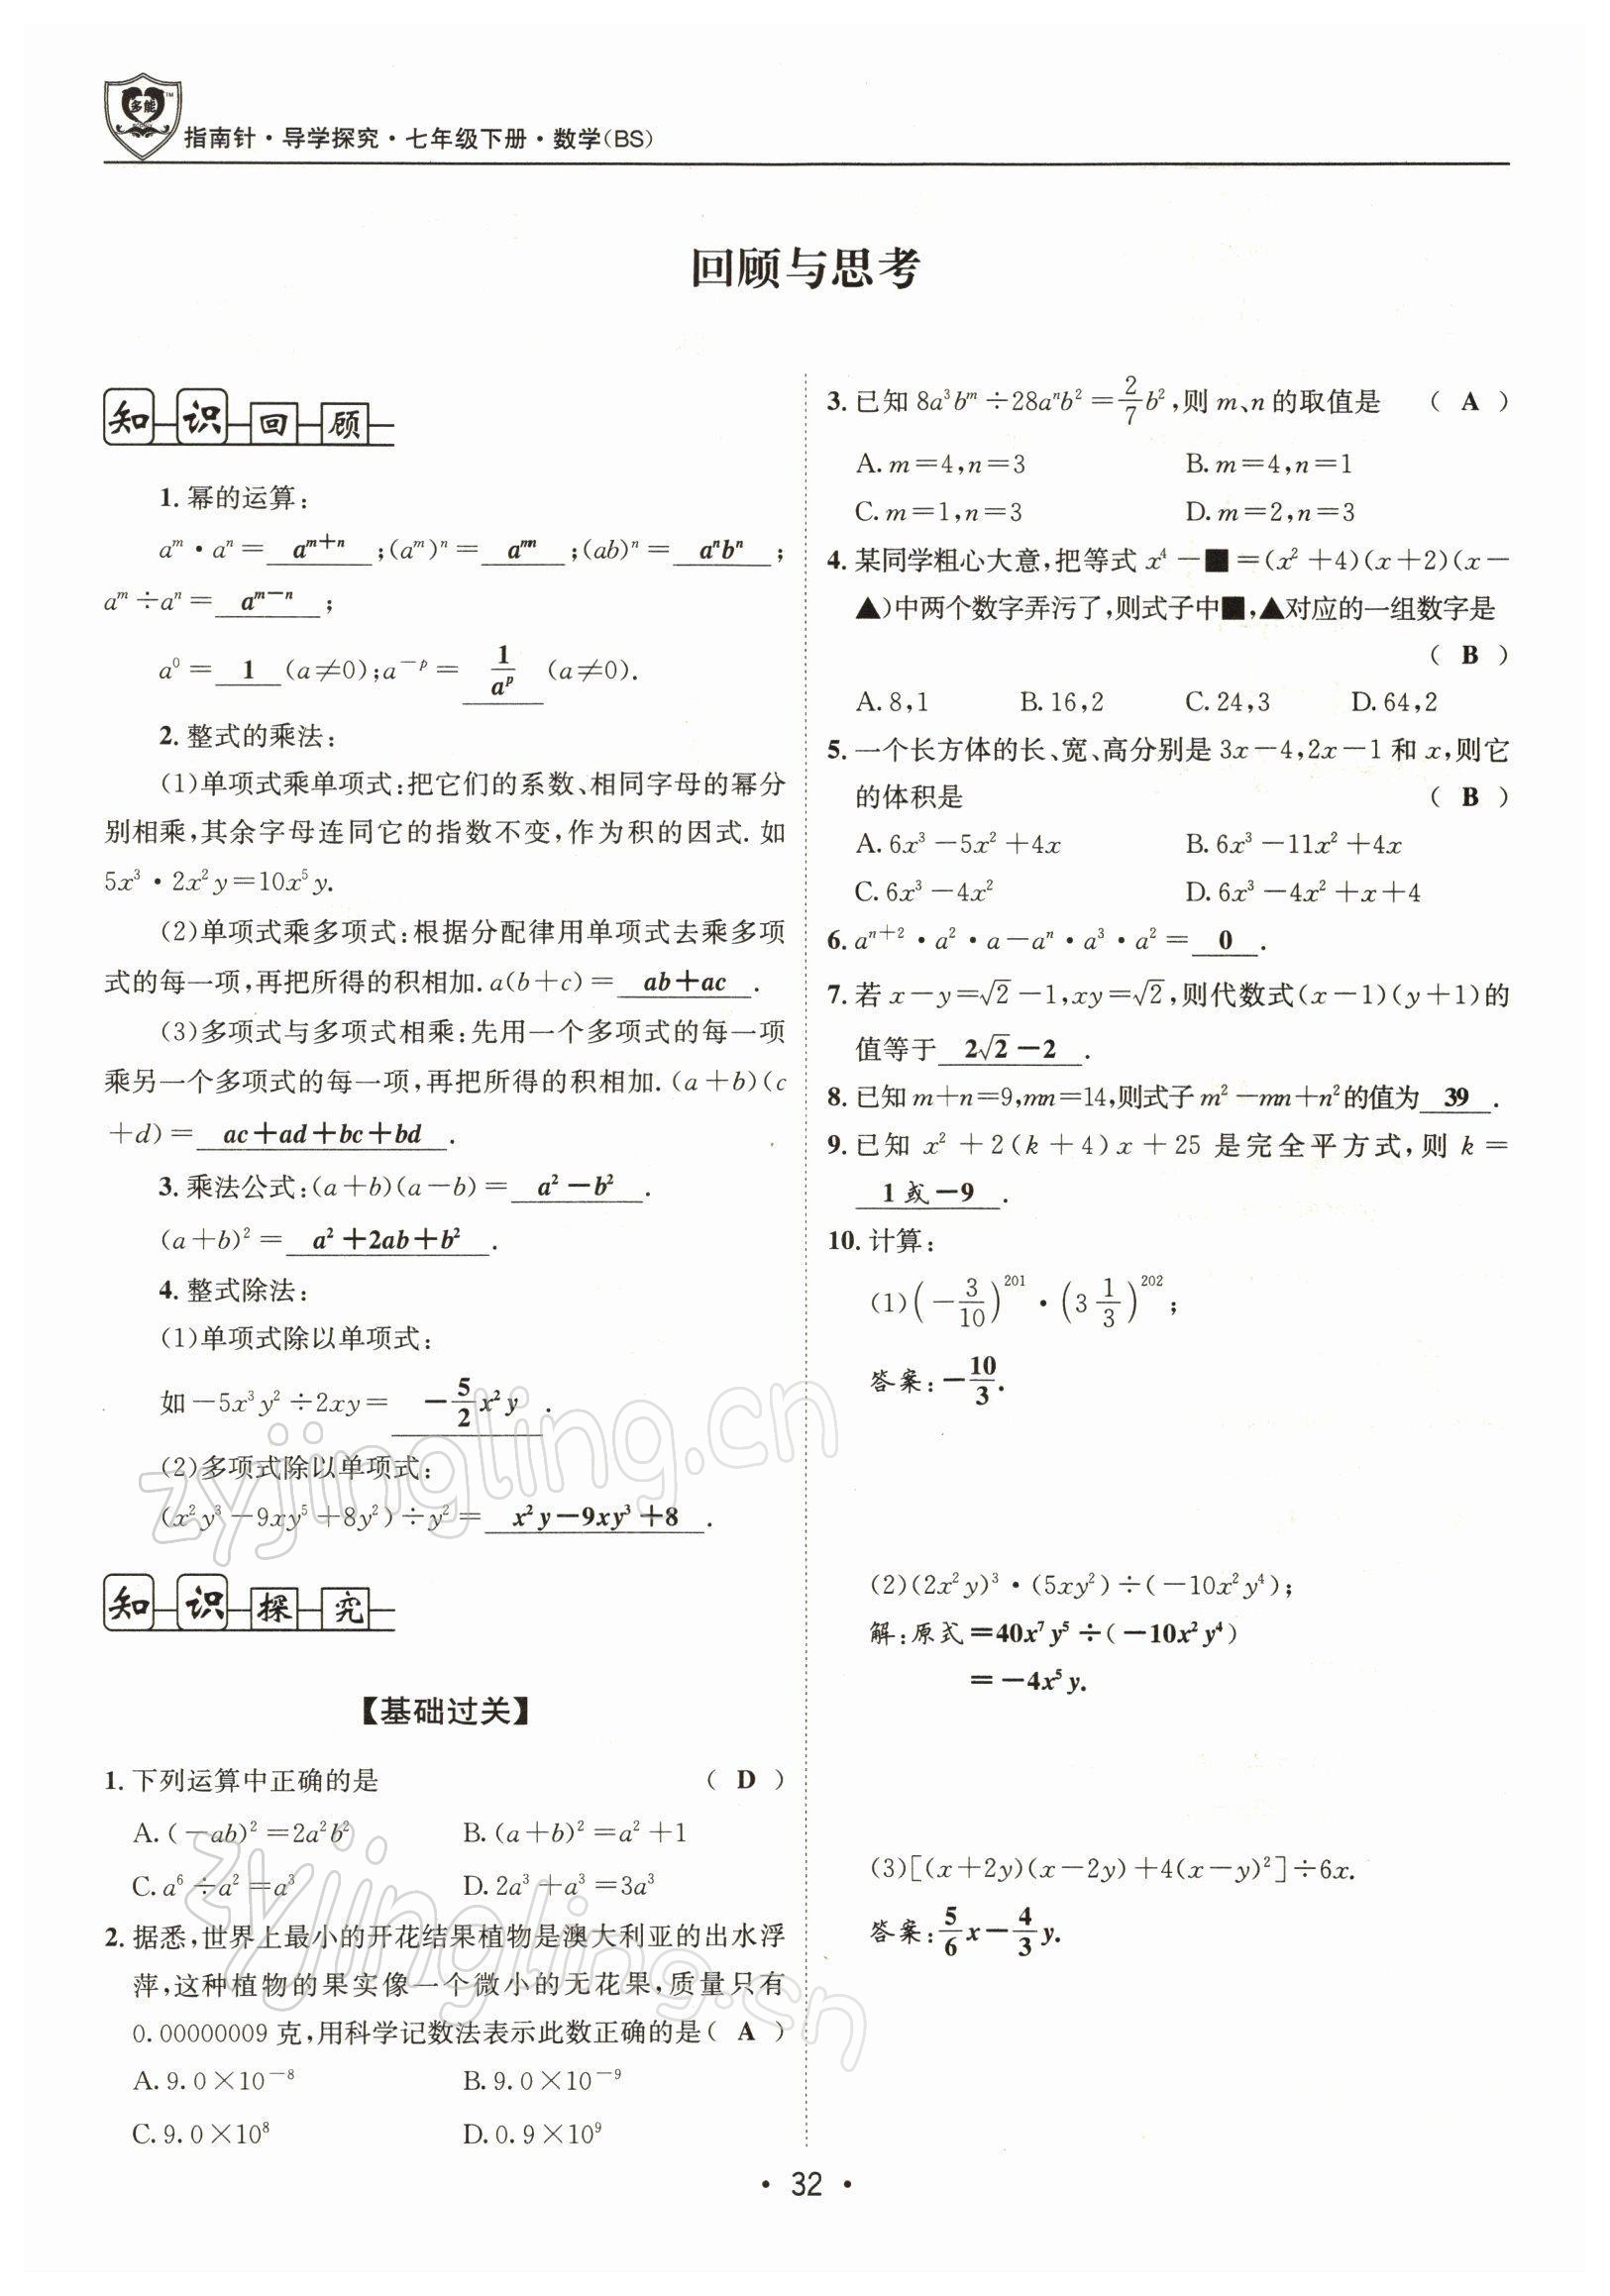 多能
TM
指南针·导学探究·七年级下册·数学(BS)
回顾与思考
知识回顾
1. 幂的运算:
a^m·a^n= a^{m+n} ;(a^m)^n= a^{mn} ;(ab)^n= a^n b^n ;
a^m÷a^n= a^{m-n} ;
a^0= 1 (a≠0);a^{-p}= 1/a^p (a≠0).
2. 整式的乘法:
(1)单项式乘单项式:把它们的系数、相同字母的幂分
别相乘,其余字母连同它的指数不变,作为积的因式. 如
5x³·2x²y=10x⁵y.
(2)单项式乘多项式:根据分配律用单项式去乘多项
式的每一项,再把所得的积相加. a(b+c)= ab+ac .
(3)多项式与多项式相乘:先用一个多项式的每一项
乘另一个多项式的每一项,再把所得的积相加. (a+b)(c
+d)= ac+ad+bc+bd .
3. 乘法公式:(a+b)(a-b)= a²-b² .
(a+b)²= a²+2ab+b² .
4. 整式除法:
(1)单项式除以单项式:
如-5x³y²÷2xy= -5/2 x²y .
(2)多项式除以单项式:
(x²y³-9xy⁵+8y²)÷y²= x²y-9xy³+8 .
知识探究
【基础过关】
1. 下列运算中正确的是 ( D )
A. (-ab)²=2a²b² B. (a+b)²=a²+1
C. a⁶÷a²=a³ D. 2a³+a³=3a³
2. 据悉,世界上最小的开花结果植物是澳大利亚的出水浮
萍,这种植物的果实像一个微小的无花果,质量只有
0.00000009 克,用科学记数法表示此数正确的是( A )
A. 9.0×10⁻⁸ B. 9.0×10⁻⁹
C. 9.0×10⁸ D. 0.9×10⁹
3. 已知 8a³b^m÷28a^n b²=2/7 b²,则 m、n 的取值是 ( A )
A. m=4,n=3 B. m=4,n=1
C. m=1,n=3 D. m=2,n=3
4. 某同学粗心大意,把等式 x⁴-■=(x²+4)(x+2)(x-
▲)中两个数字弄污了,则式子中■,▲对应的一组数字是
( B )
A. 8,1 B. 16,2 C. 24,3 D. 64,2
5. 一个长方体的长、宽、高分别是 3x-4,2x-1 和 x,则它
的体积是 ( B )
A. 6x³-5x²+4x B. 6x³-11x²+4x
C. 6x³-4x² D. 6x³-4x²+x+4
6. a^{n+2}·a²·a-a^n·a³·a²= 0 .
7. 若 x-y=√2-1,xy=√2,则代数式(x-1)(y+1)的
值等于 2√2-2 .
8. 已知 m+n=9,mn=14,则式子 m²-mn+n²的值为 39 .
9. 已知 x²+2(k+4)x+25 是完全平方式,则 k=
1 或-9 .
10. 计算:
(1)(-3/10)^{201}·(3 1/3)^{202};
答案:-10/3.
(2)(2x²y)³·(5xy²)÷(-10x²y⁴);
解:原式=40x⁷y⁵÷(-10x²y⁴)
=-4x⁵y.
(3)[(x+2y)(x-2y)+4(x-y)²]÷6x.
答案:5/6 x-4/3 y.
zyjingling.cn
zyjingling.cn
·32·